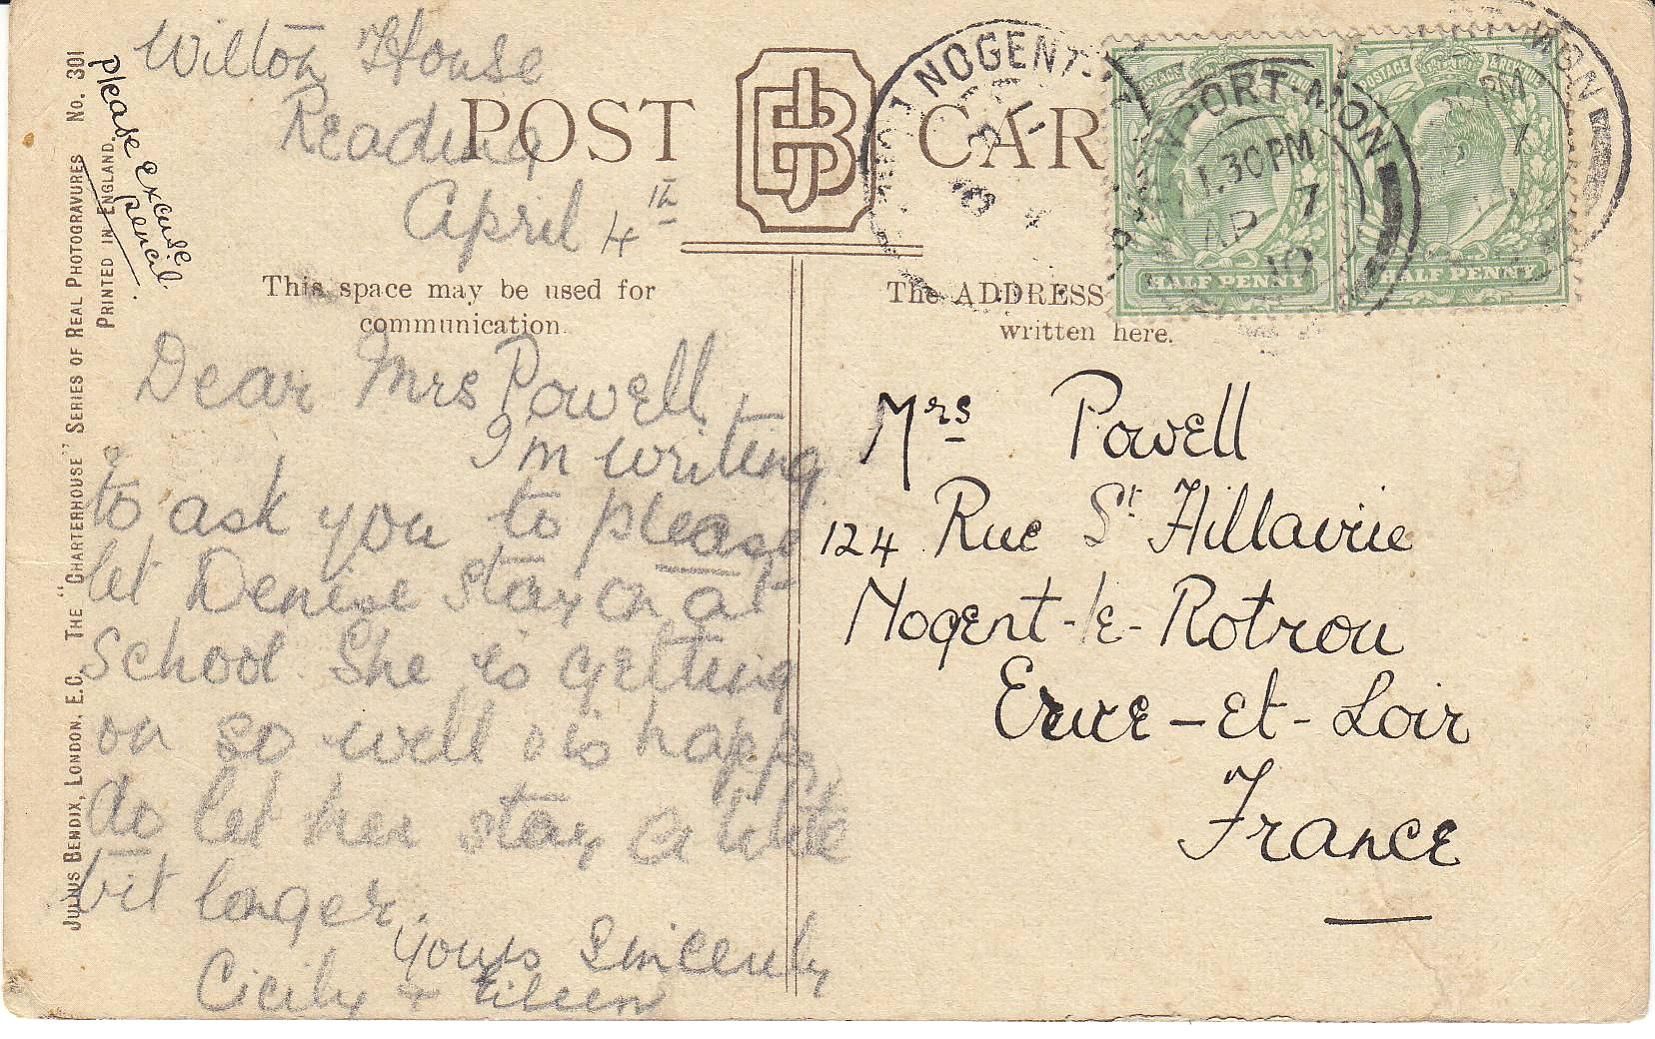 Wilton House
Reading
April 4th
POST CAR
This space may be used for
communication.
Dear Mrs Powell,
I'm writing
to ask you to please
let Denise stay on at
School. She is getting
on so well & is happy,
do let her stay a little
bit longer.
Yours Sincerely
Cicily + Eileen
please excuse
pencil.
JULIUS BENDIX, LONDON, E.C. THE "CHARTERHOUSE" SERIES OF REAL PHOTOGRAVURES No. 301
PRINTED IN ENGLAND
BJ
NOGENT
NEWPORT-MON
1.30PM
AP 7
10
MON
30PM
7
POSTAGE REVENUE
HALF PENNY
POSTAGE & REVENUE
HALF PENNY
The ADDRESS
written here.
Mrs Powell
124 Rue St Hillairie
Nogent-le-Rotrou
Eure-et-Loir
France